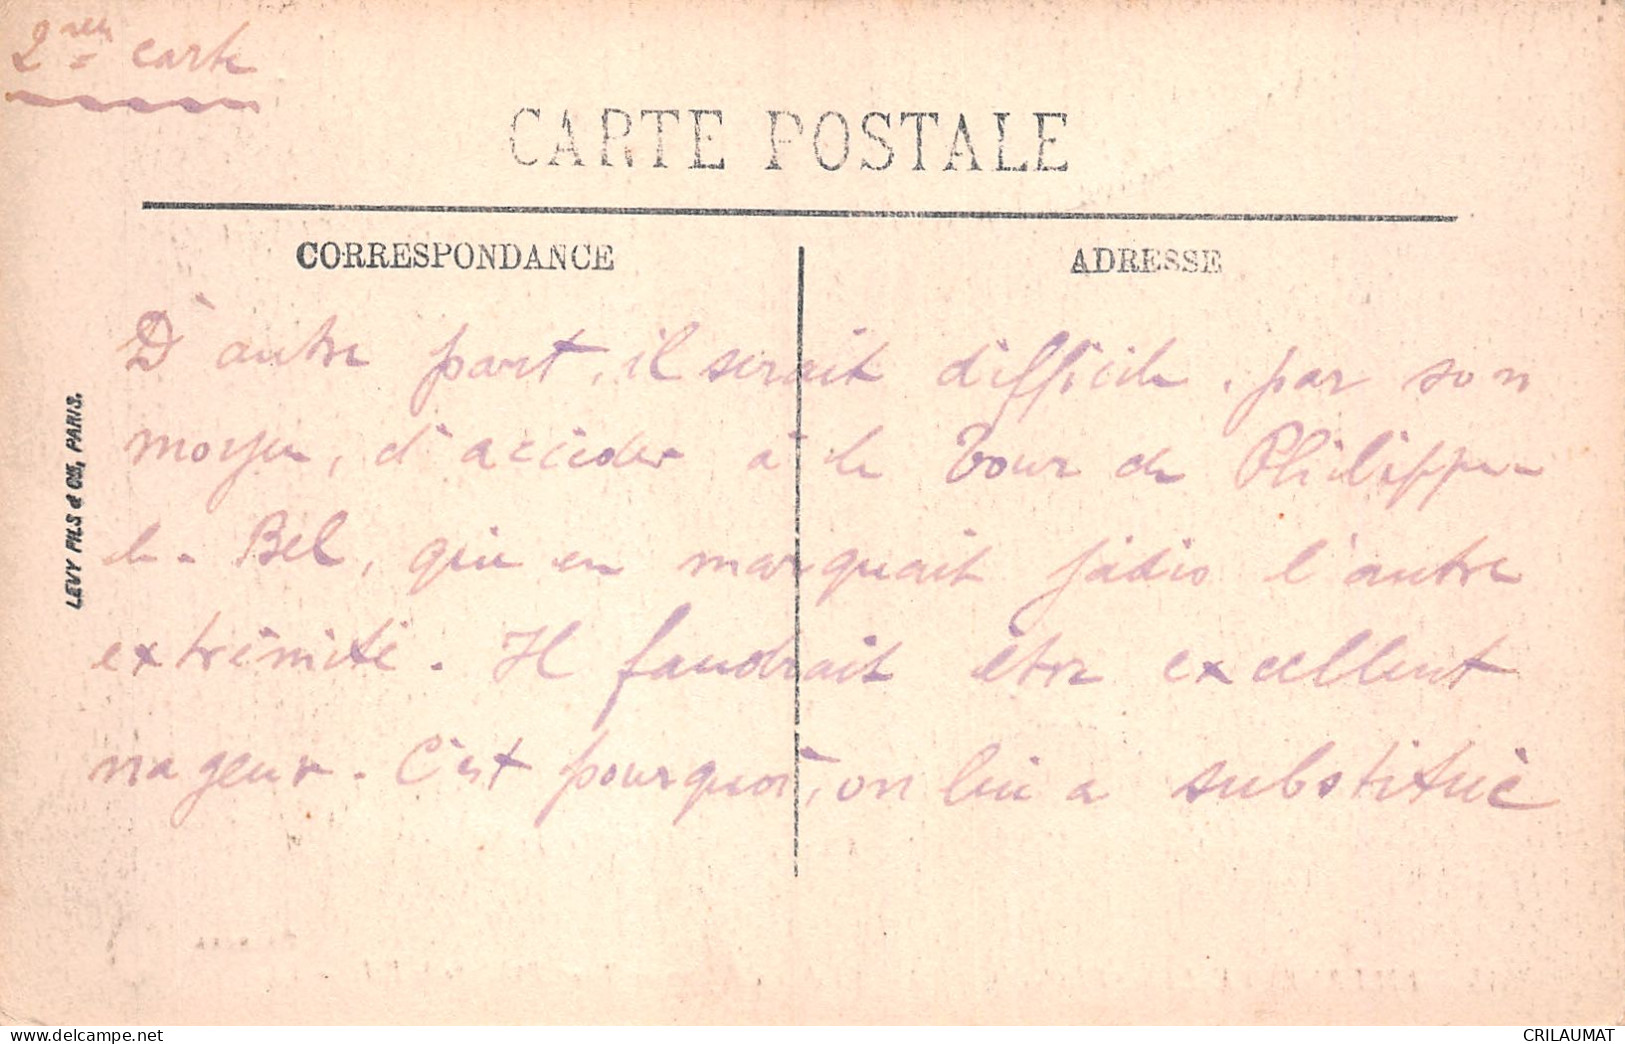 2ème carte
CARTE POSTALE
CORRESPONDANCE
ADRESSE
D'autre part, il serait difficile, par son
moyen, d'accéder à la Tour de Philippe
le-Bel, qui en marquait jadis l'autre
extrémité. Il faudrait être excellent
nageur. C'est pourquoi, on lui a substitué
LEVY FILS & Cie, PARIS.
www.delcampe.net
CRILAUMAT